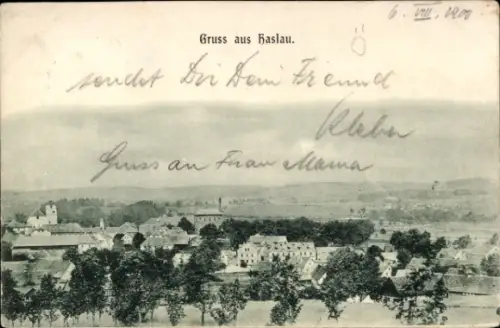 Gruss aus Haslau.
6 VIII. 1900
sendet Dir Dein Freund
Kleber
Gruss an Frau Mama